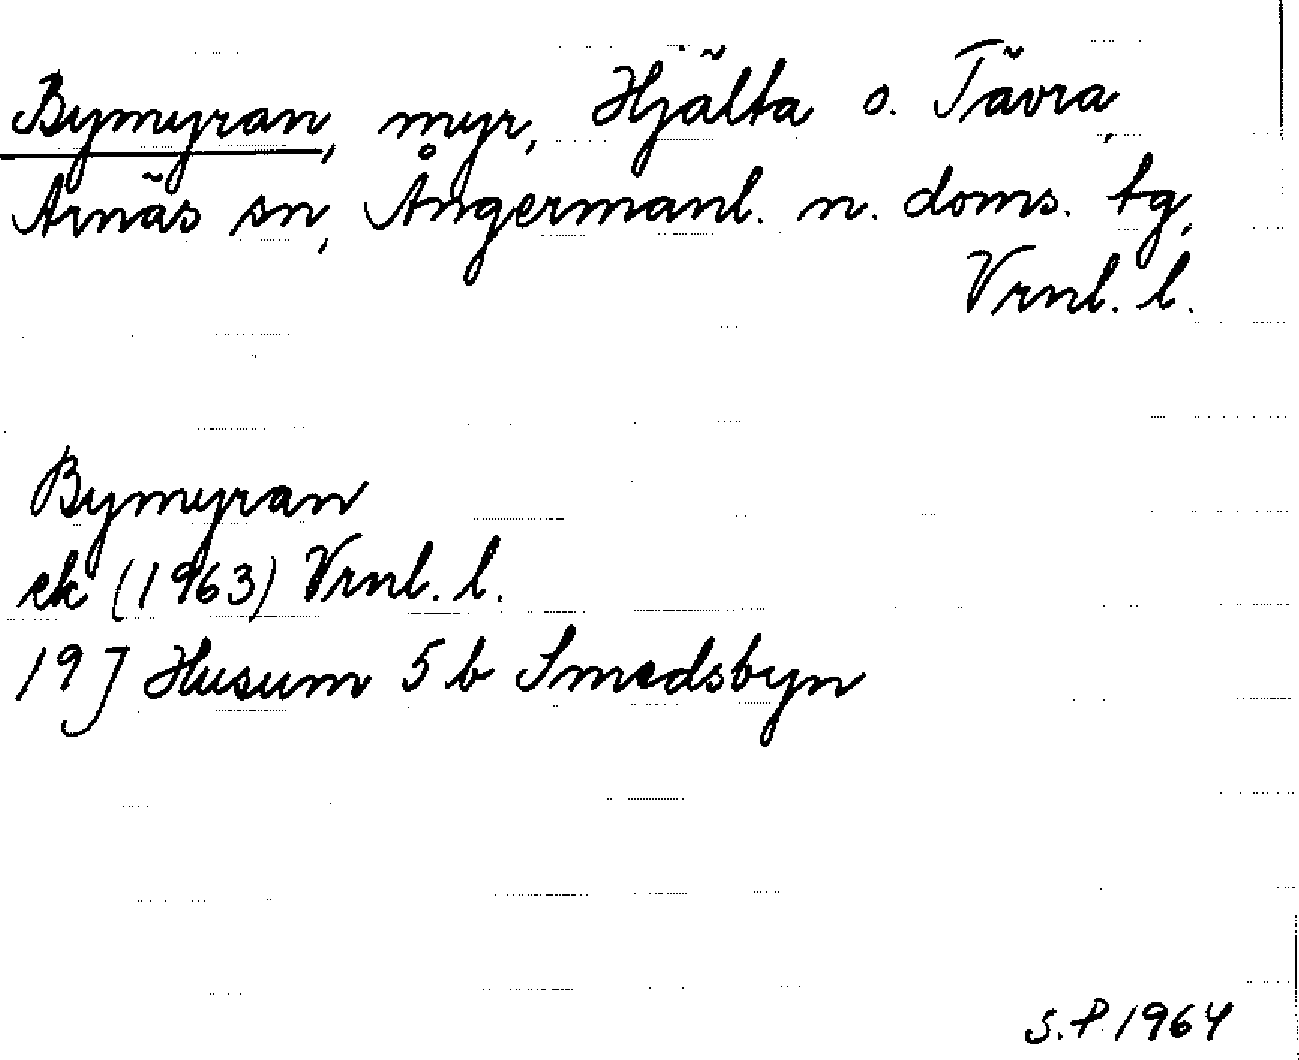 Bymyran, myr, Hjälta o. Tävra,
Arnäs sn, Ångermanl. n. doms. tg,
Vrnl. l.
Bymyran
ek (1963) Vrnl. l.
19 J Husum 5 b Smedsbyn
S.P. 1964